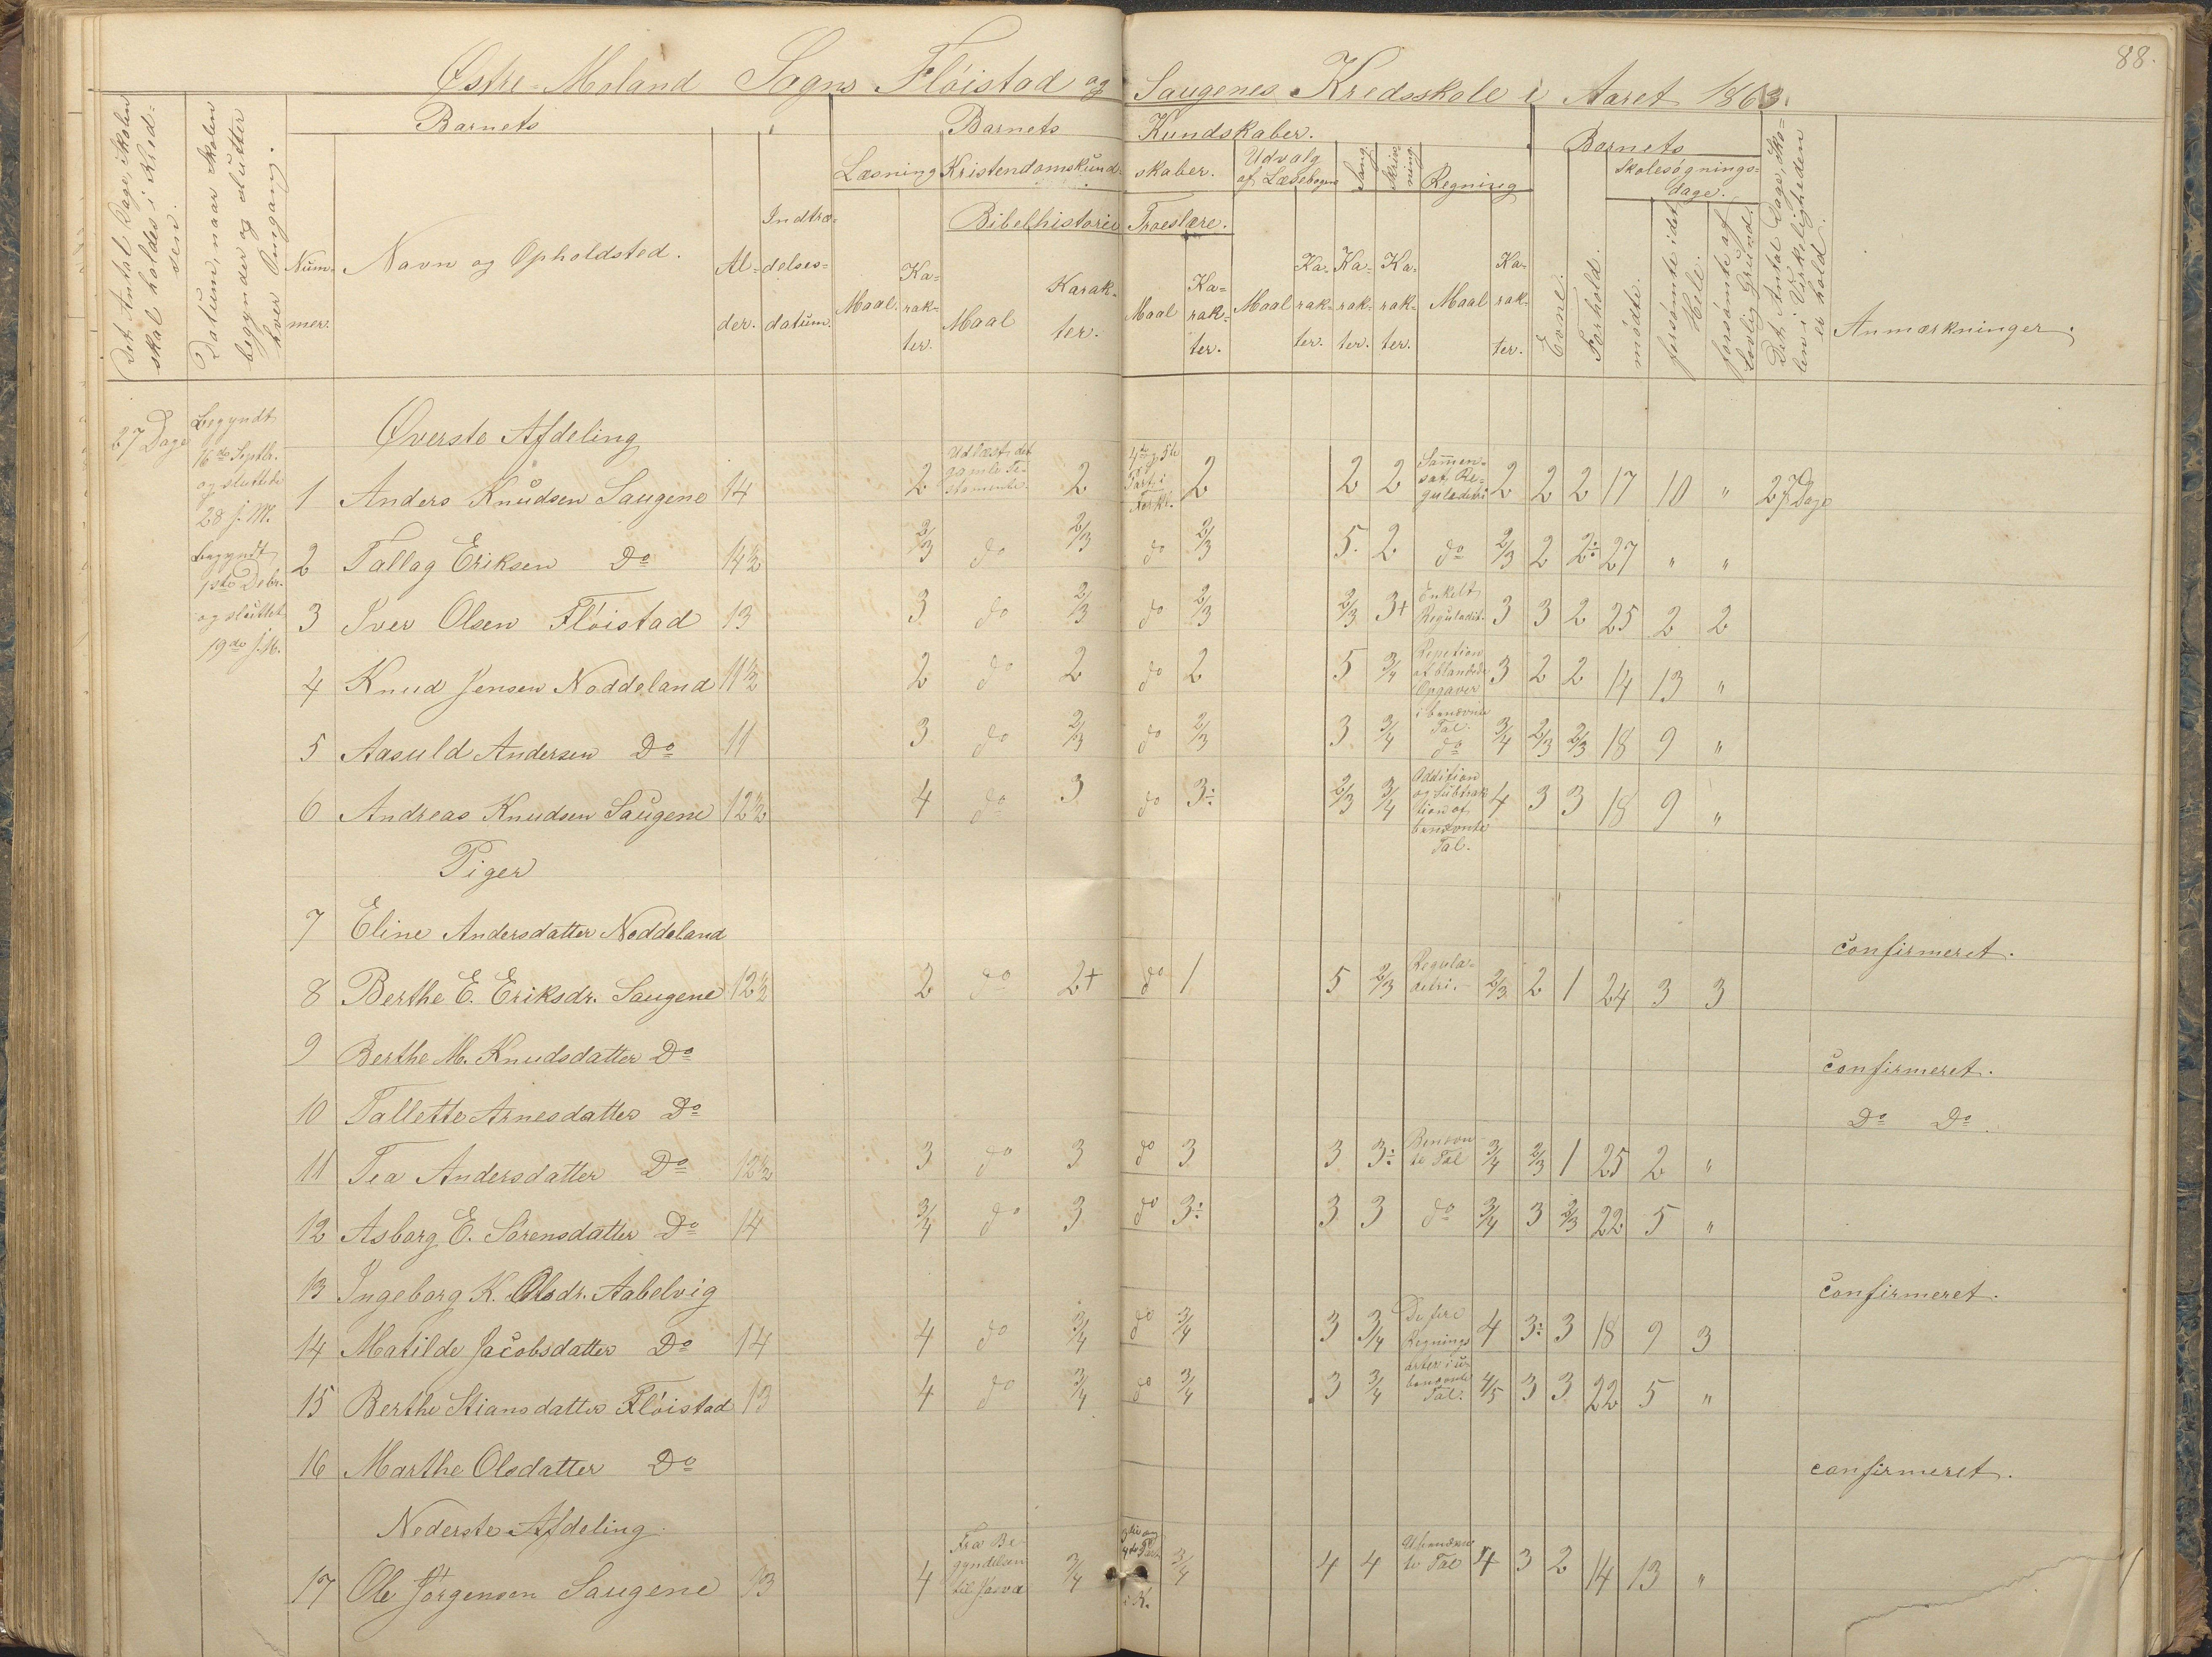 88.
Østre-Moland Sogns Flöistad og Saugenes Kredsskole i Aaret 1863.
Det Antal Dage, Skolen skal holdes i Kredsen.
Datum, naar Skolen begynder og slutter hver Omgang.
Barnets
Nummer.
Navn og Opholdsted.
Alder.
Indtrædelsesdatum.
Barnets Kundskaber.
Læsning Kristendomskundskaber. Udvalg af Læsebogen Sang Skrivning Regning
Bibelhistorie Troeslære.
Maal. Karakter. Maal Karakter. Maal Karakter. Maal Karakter. Karakter. Karakter. Maal Karakter.
Barnets
Evne. Forhold.
Skolesøgningsdage.
mødte. forsømte i det Hele. forsømte af lovlig Grund.
Det Antal Dage, Skolen i Virkeligheden er hold
Anmærkninger.
27 Dage
Begyndt
16de Septbr.
og sluttede
28 s. M.
begyndt
1ste Debr.
og sluttet
19de s. M.
Øverste Afdeling
1 Anders Knudsen Saugene 14 2 Udlæst det gamle Testamente. 2 4de og 5te Part i Forkl. 2 2 2 Sammensat Reguladetri 2 2 2 17 10 " 27 Dage
2 Tallag Eriksen Do 14½ 2/3 do 2/3 do 2/3 5. 2 do 2/3 2 2÷ 27 " "
3 Iver Olsen Flöistad 13 3 do 2/3 do 2/3 2/3 3+ Enkelt Reguladet. 3 3 2 25 2 2
4 Knud Jensen Noddeland 11½ 2 do 2 do 2 5 3/4 Repetion af blandede Opgaver i benævnte Tal. 3 2 2 14 13 "
5 Aasuld Andersen Do 11 3 do 2/3 do 2/3 3 3/4 do 3/4 2/3 2/3 18 9 "
6 Andreas Knudsen Saugene 12½ 4 do 3 do 3÷ 2/3 3/4 Addition og Subtraktion af benævnte Tal. 4 3 3 18 9 "
Piger
7 Eline Andersdatter Noddeland confirmeret.
8 Berthe E. Eriksdr. Saugene 12½ 2 do 2+ do 1 5 2/3 Reguladetri. 2/3 2 1 24 3 3
9 Berthe M. Knudsdatter Do confirmeret.
10 Tallette Arnesdatter Do Do Do.
11 Tea Andersdatter Do 12½ 3 do 3 do 3 3 3÷ Benævnte Tal 3/4 2/3 1 25 2 "
12 Asborg E. Sörensdatter Do 14 3/4 do 3 do 3÷ 3 3 do 3/4 3 2/3 22 5 "
13 Ingeborg K. Olsdr. Aabelvig confirmeret.
14 Matilde Jacobsdatter Do 14 4 do 3/4 do 3/4 3 3/4 De fire Regningsarter i ubenævnte Tal. 4 3÷ 3 18 9 3
15 Berthe Stiansdatter Flöistad 13 4 do 3/4 do 3/4 3 3/4 4/5 3 3 22 5 "
16 Marthe Olsdatter Do confirmeret.
Nederste Afdeling.
17 Ole Jörgensen Saugene 13 4 Fra Begyndelsen til 3/4 3die og 4de Part i K. 3/4 4 4 Ubenævnte Tal 4 3 2 14 13 "